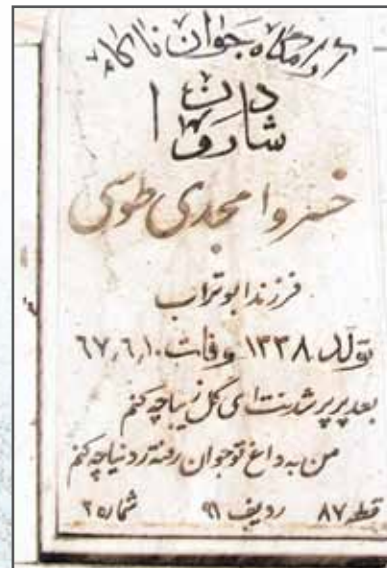 آرامگاه جوان ناکام
شادروان
خسرو امجدی طوسی
فرزند ابوتراب
تولد ۱۳۳۸ وفات ۶۷٫۶٫۱۰
بعد پرپر شدنت ای گل زیبا چه کنم
من به داغ تو جوان رفته ز دنیا چه کنم
قطعه ۸۷ ردیف ۹۱ شماره ۲